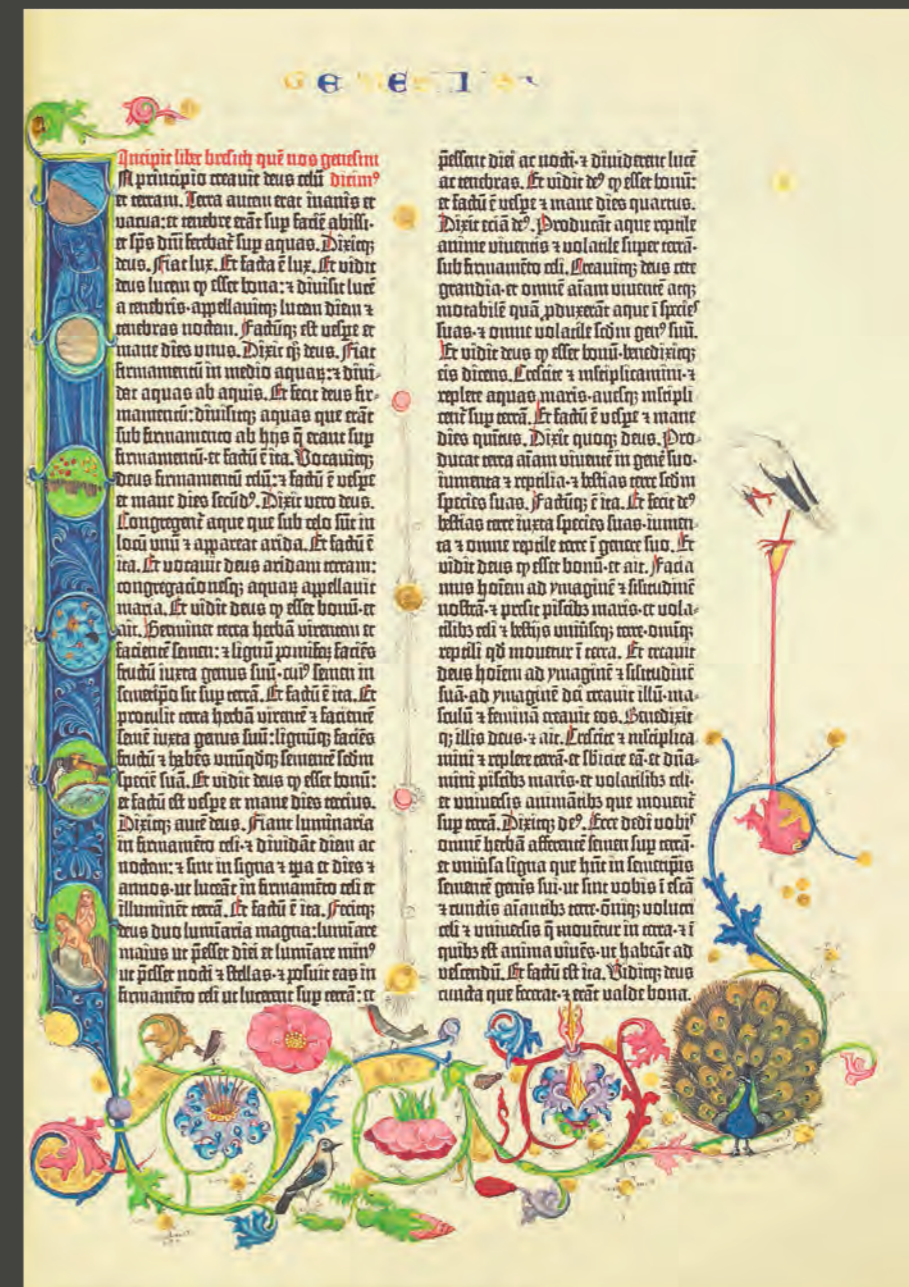 GENESIS
Incipit liber bresith quē nos genesim
N principio creauit deus celū dicimꝰ
et terram. Terra autem erat inanis et
vacua: et tenebre erāt sup faciē abissi·
et sp̄s dn̄i ferebat̄ sup aquas. Dixitq;
deus. Fiat lux. Et facta ē lux. Et vidit
deus lucem ꝙ esset bona: ⁊ diuisit lucē
a tenebris·appellauitq; lucem diem ⁊
tenebras noctem. Factūq; est vespe et
mane dies vnus. Dixit qꝫ deus. Fiat
firmamentū in medio aquaꝝ: ⁊ diui-
dat aquas ab aquis. Et fecit deus fir-
mamentū: diuisitq; aquas que erāt
sub firmamento ab hijs q̄ erant sup
firmamentū·et factū ē ita. Vocauitq;
deus firmamentū celū: ⁊ factū ē vespe
et mane dies secūdꝰ. Dixit vero deus.
Congregent̄ aque que sub celo sūt in
locū vnū ⁊ appareat arida. Et factū ē
ita. Et vocauit deus aridam terram:
congregacionesq; aquaꝝ appellauit
maria. Et vidit deus ꝙ esset bonū·et
ait. Germinet terra herbā virentem et
facientē semen: ⁊ lignū pomifeꝝ faciēs
fructū iuxta genus suū·cuiꝰ semen in
semetipo sit sup terrā. Et factū ē ita. Et
protulit terra herbā virentē ⁊ facientē
semē iuxta genus suū: lignūq; faciēs
fructū ⁊ habēs vnūqdq; sementē scdm
speciē suā. Et vidit deus ꝙ esset bonū:
et factū est vespe et mane dies tercius.
Dixitq; autē deus. Fiant luminaria
in firmamēto celi·⁊ diuidāt diem ac
noctem: ⁊ sint in signa ⁊ tpa et dies ⁊
annos·ut luceāt in firmamēto celi et
illuminēt terrā. Et factū ē ita. Fecitq;
deus duo luminaria magna: lumiare
maius ut p̄esset diei et lumiare minꝰ
ut p̄esset nocti ⁊ stellas·⁊ posuit eas in
firmamēto celi ut lucerent sup terrā: et
p̄essent diei ac nocti·⁊ diuiderent lucē
ac tenebras. Et vidit deꝰ ꝙ esset bonū:
et factū ē vespe ⁊ mane dies quartus.
Dixit eciā deꝰ. Producāt aque reptile
anime viuentis ⁊ volatile super terrā·
sub firmamēto celi. Creauitq; deus cete
grandia·et omnē aīam viuentē atq;
motabilē quā pduxerāt aque ī species
suas·⁊ omne volatile scdm genꝰ suū.
Et vidit deus ꝙ esset bonū·benedixitq;
eis dicens. Crescite ⁊ mltiplicamini·⁊
replete aquas maris·auesq; mltipli
cent̄ sup terrā. Et factū ē vespe ⁊ mane
dies quītus. Dixit quoq; deus. Pro-
ducat terra aīam viuentē in genē suo·
iumenta ⁊ reptilia·⁊ bestias terre scdm
species suas. Factūq; ē ita. Et fecit deꝰ
bestias terre iuxta species suas·iumen-
ta ⁊ omne reptile terre ī genere suo. Et
vidit deus ꝙ esset bonū·et ait. Facia
mus hoīem ad ymaginē ⁊ silitudinē
nostrā·⁊ presit piscibꝫ maris·et vola-
tilibꝫ celi ⁊ bestijs vniūseq; terre·omīq;
reptili qd mouetur ī terra. Et creauit
deus hoīem ad ymaginē ⁊ silitudinē
suā·ad ymaginē dei creauit illū·ma-
sculū ⁊ feminā creauit eos. Benedixit
q; illis deus·⁊ ait. Crescite ⁊ mltiplica
mini ⁊ replete terrā·et sbicite eā·et dn̄a-
mini piscibꝫ maris·et volatilibꝫ celi·
et vniuersis animātibꝫ que mouent̄
sup terrā. Dixitq; deꝰ. Ecce dedi vobis
omnē herbā afferentē semen sup terrā·
et vniūsa ligna que hn̄t in semetipis
sementē gn̄is sui·ut sint vobis ī escā
⁊ cunctis aīantibꝫ terre·om̄iq; volucri
celi ⁊ vniuersis q̄ mouētur in terra·⁊ ī
quibꝫ est anima viuēs·ut habeāt ad
vescendū. Et factū est ita. Viditq; deus
cuncta que fecerat·⁊ erāt valde bona.